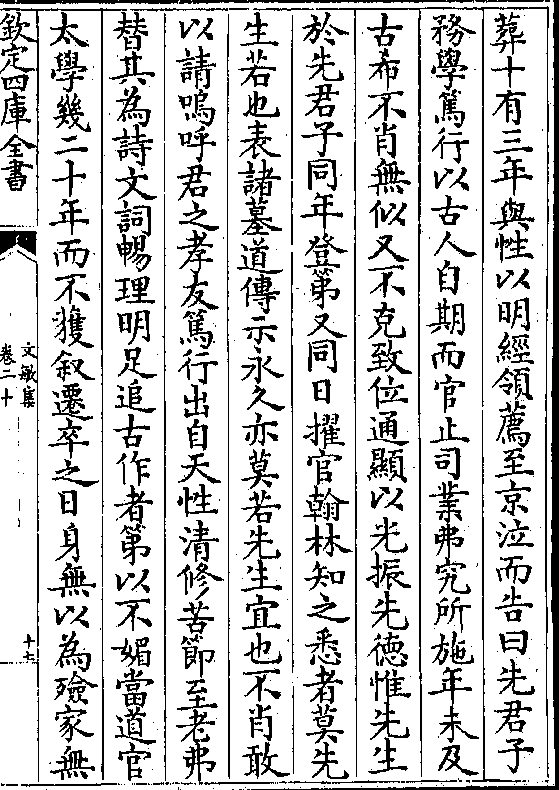 葬十有三年與性以明經領薦至京泣而告曰先君子
務學篤行以古人自期而官止司業弗究所施年未及
古希不肖無似又不克致位通顯以光振先德惟先生
於先君子同年登第又同日擢官翰林知之悉者莫先
生若也表諸墓道傳示永久亦莫若先生宜也不肖敢
以請嗚呼君之孝友篤行出自天性清修苦節至老弗
替其為詩文詞暢理明足追古作者第以不媚當道官
太學幾二十年而不獲叙遷卒之日身無以為殮家無
欽定四庫全書
文敏集
卷二十
十七